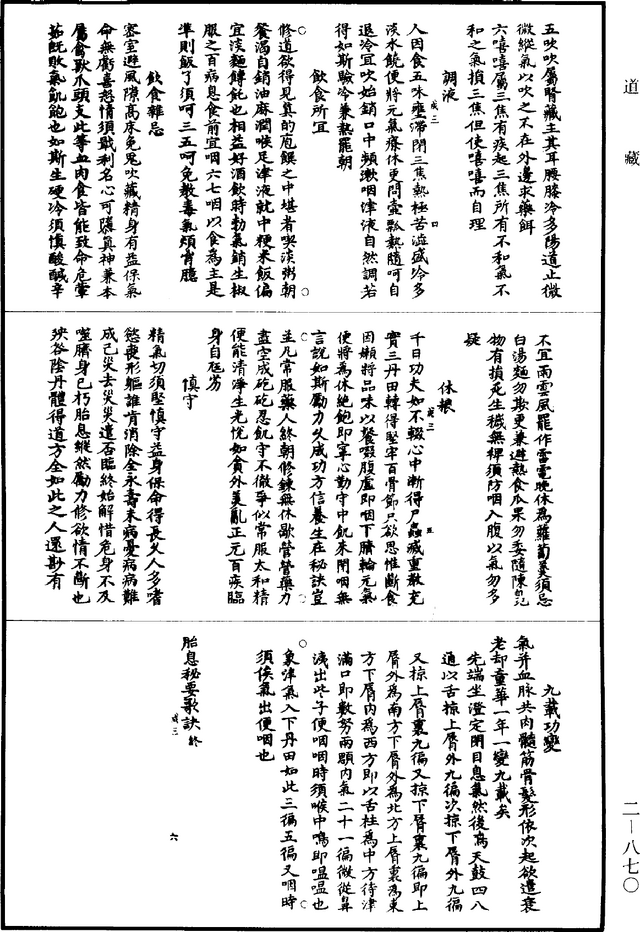 道藏
五吹吹屬腎藏主其耳腰膝冷多陽道止微
微縱氣以吹之不在外邊求藥餌
六嘻嘻屬三焦有疾起三焦所有不和氣不
和之氣損三焦但使嘻嘻而自理
調液
人因食五味壅滯閉三焦熱極苦澁盛冷多
淡水饒便將元氣療休更問壺瓢熱隨呵自
退冷宜吹始銷口中頻漱咽津液自然調若
得如斯驗冷兼熱罷朝
飲食所宜
修道欲得見真的庖饌之中堪者喫淡粥朝
餐渴自銷油麻潤喉足津液就中粳米飯偏
宜淡麵餺飥也相益好酒飲時勃氣銷生椒
服之百病息食前宜咽六七咽以食為主是
準則飯了須呵三五呵免教毒氣煩胷臆
飲食雜忌
密室避風隙高床免鬼吹藏精身有益保氣
命無虧喜怒情須戢利名心可隳真神兼本
屬禽獸爪頭支此等血肉食皆能致命危葷
茹既敗氣飢飽也如斯生硬冷須慎酸鹹辛
不宜雨雲風罷作雷電晚休為蘿蔔羹須忌
白湯麵勿欺更兼避熱食瓜果勿委隨陳
物有損死生穢無裨須防咽入腹以氣勿多
疑
休糧
千日功夫如不輟心中漸得尸蟲滅重教充
實三丹田轉得堅牢百骨節只欲思惟斷食
因懶將品味以餐啜腹虛即咽下臍輪元氣
便將為休絕飽即寧心勤守中飢來閉咽無
言說如斯勵力久成功方信養生在秘訣豈
並凡常服藥人終朝修鍊無休歇營營藥力
盡空成矻矻忍飢守不徹爭似常服太和精
便能清淨生光悅如貪外美亂正元百疾臨
身自尪劣
慎守
精氣切須堅慎守益身保命得長久人多嗜
慾喪形軀誰肯消除全永壽未病憂病病難
成已災去災災遣否臨終始解惜危身不及
噬臍身已朽胎息縱然勵力修欲情不斷也
殃咎陰丹體得道方全如此之人還尠有
九載功變
氣并血脉共肉髓筋骨髮形依次起欲遣衰
老却童華一年一變九載矣
先端坐澄定閉目息氣然後鳴天鼓四八
通以舌掠上脣外九徧次掠下脣外九徧
又掠上脣裏九徧又掠下脣裏九徧即上
脣外為南方下脣外為北方上脣裏為東
方下脣內為西方即以舌柱為中方待津
滿口即數努兩顋內氣二十一徧微從鼻
洩出些子便咽咽時須喉中鳴即嗢嗢也
象津氣入下丹田如此三徧五徧又咽時
須俟氣出便咽也
胎息秘要歌訣終
二—八七〇